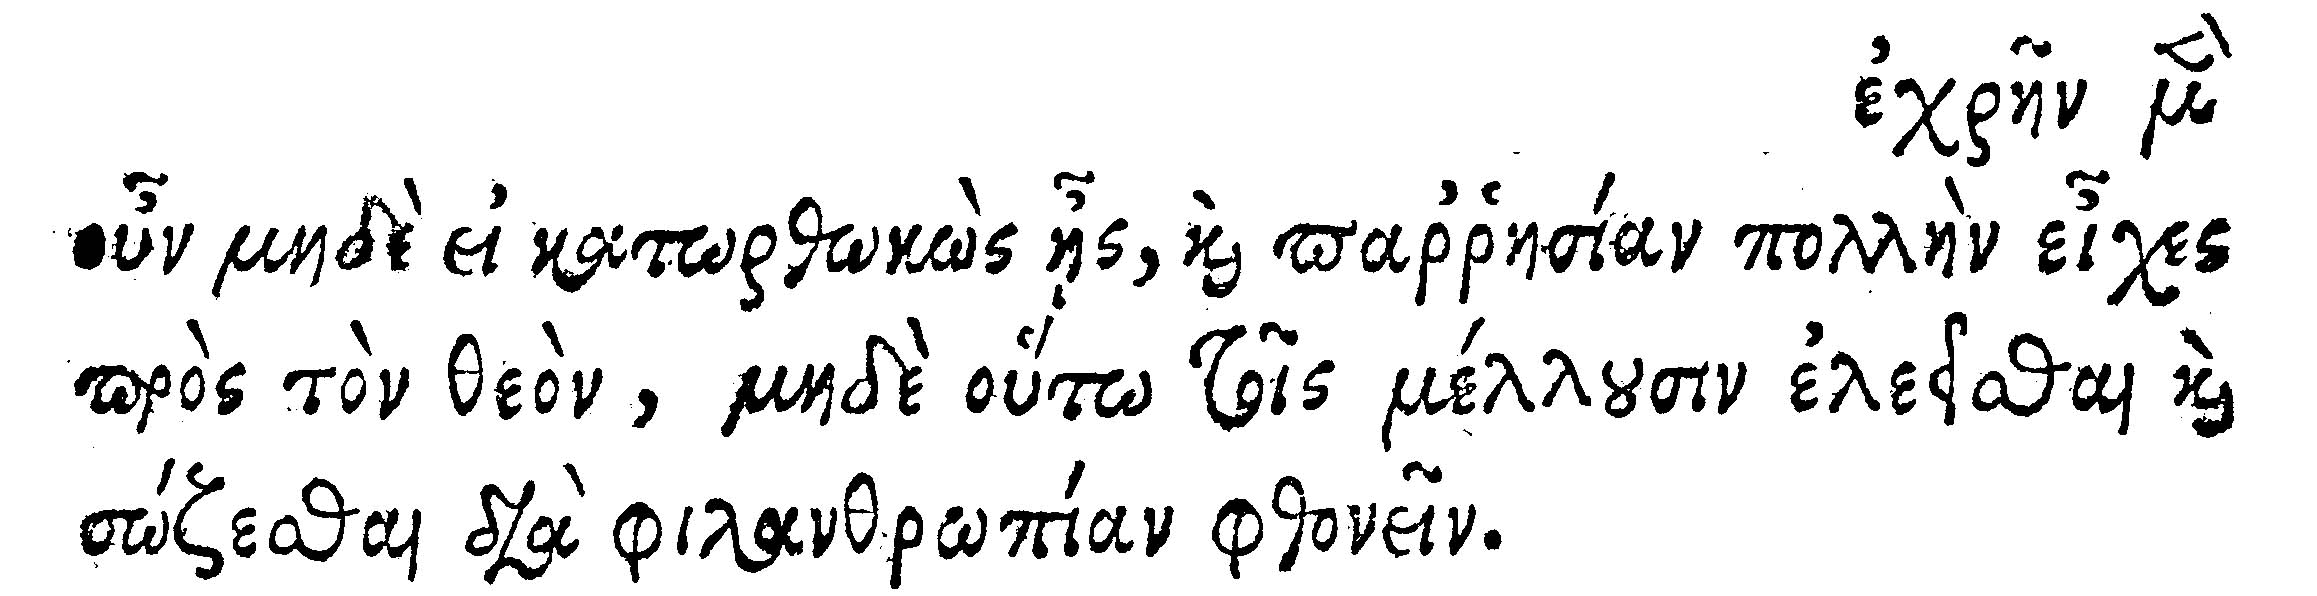 ἐχρῆν μὲν
οὖν μηδὲ εἰ κατωρθωκὼς ᾖς, καὶ παῤῥησίαν πολλὴν εἶχες
πρὸς τὸν θεὸν, μηδὲ οὕτω τοῖς μέλλουσιν ἐλεεῖσθαι καὶ
σώζεσθαι διὰ φιλανθρωπίαν φθονεῖν.